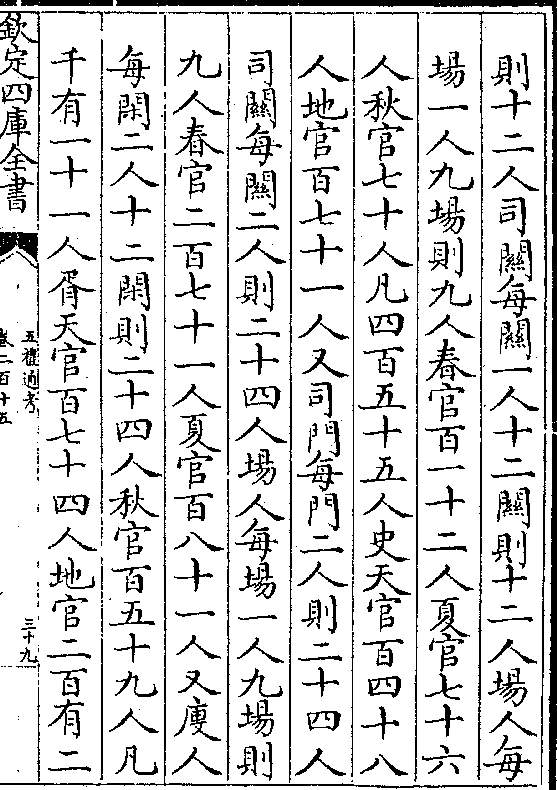 則十二人司關每關一人十二關則十二人場人每
場一人九場則九人春官百一十二人夏官七十六
人秋官七十人凡四百五十五人史天官百四十八
人地官百七十一人又司門每門二人則二十四人
司關每關二人則二十四人場人每場一人九場則
九人春官二百七十一人夏官百八十一人又廋人
每閑二人十二閑則二十四人秋官百五十九人凡
千有一十一人胥天官百七十四人地官二百有二
欽定四庫全書
五禮通考
卷二百十五
三十九